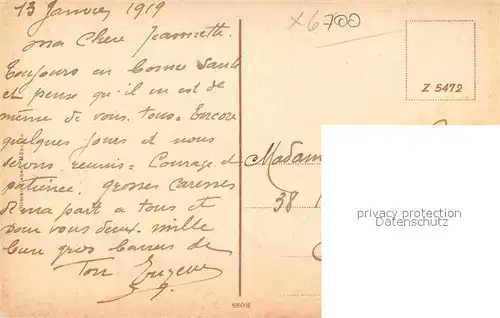 13 Janvier 1919
ma Chère Jeannette.
Toujours en bonne Santé
et pense qu'il en est de
même de vous. tous = Encore
quelques jours et nous
serons reunis = Courage et
patience. Grosses Caresses
de ma part a tous et
pour vous deux. mille
bien gros baisers de
Ton Eugene
x6700
Z 5472
Madam
38
privacy protection
Datenschutz
ROSS